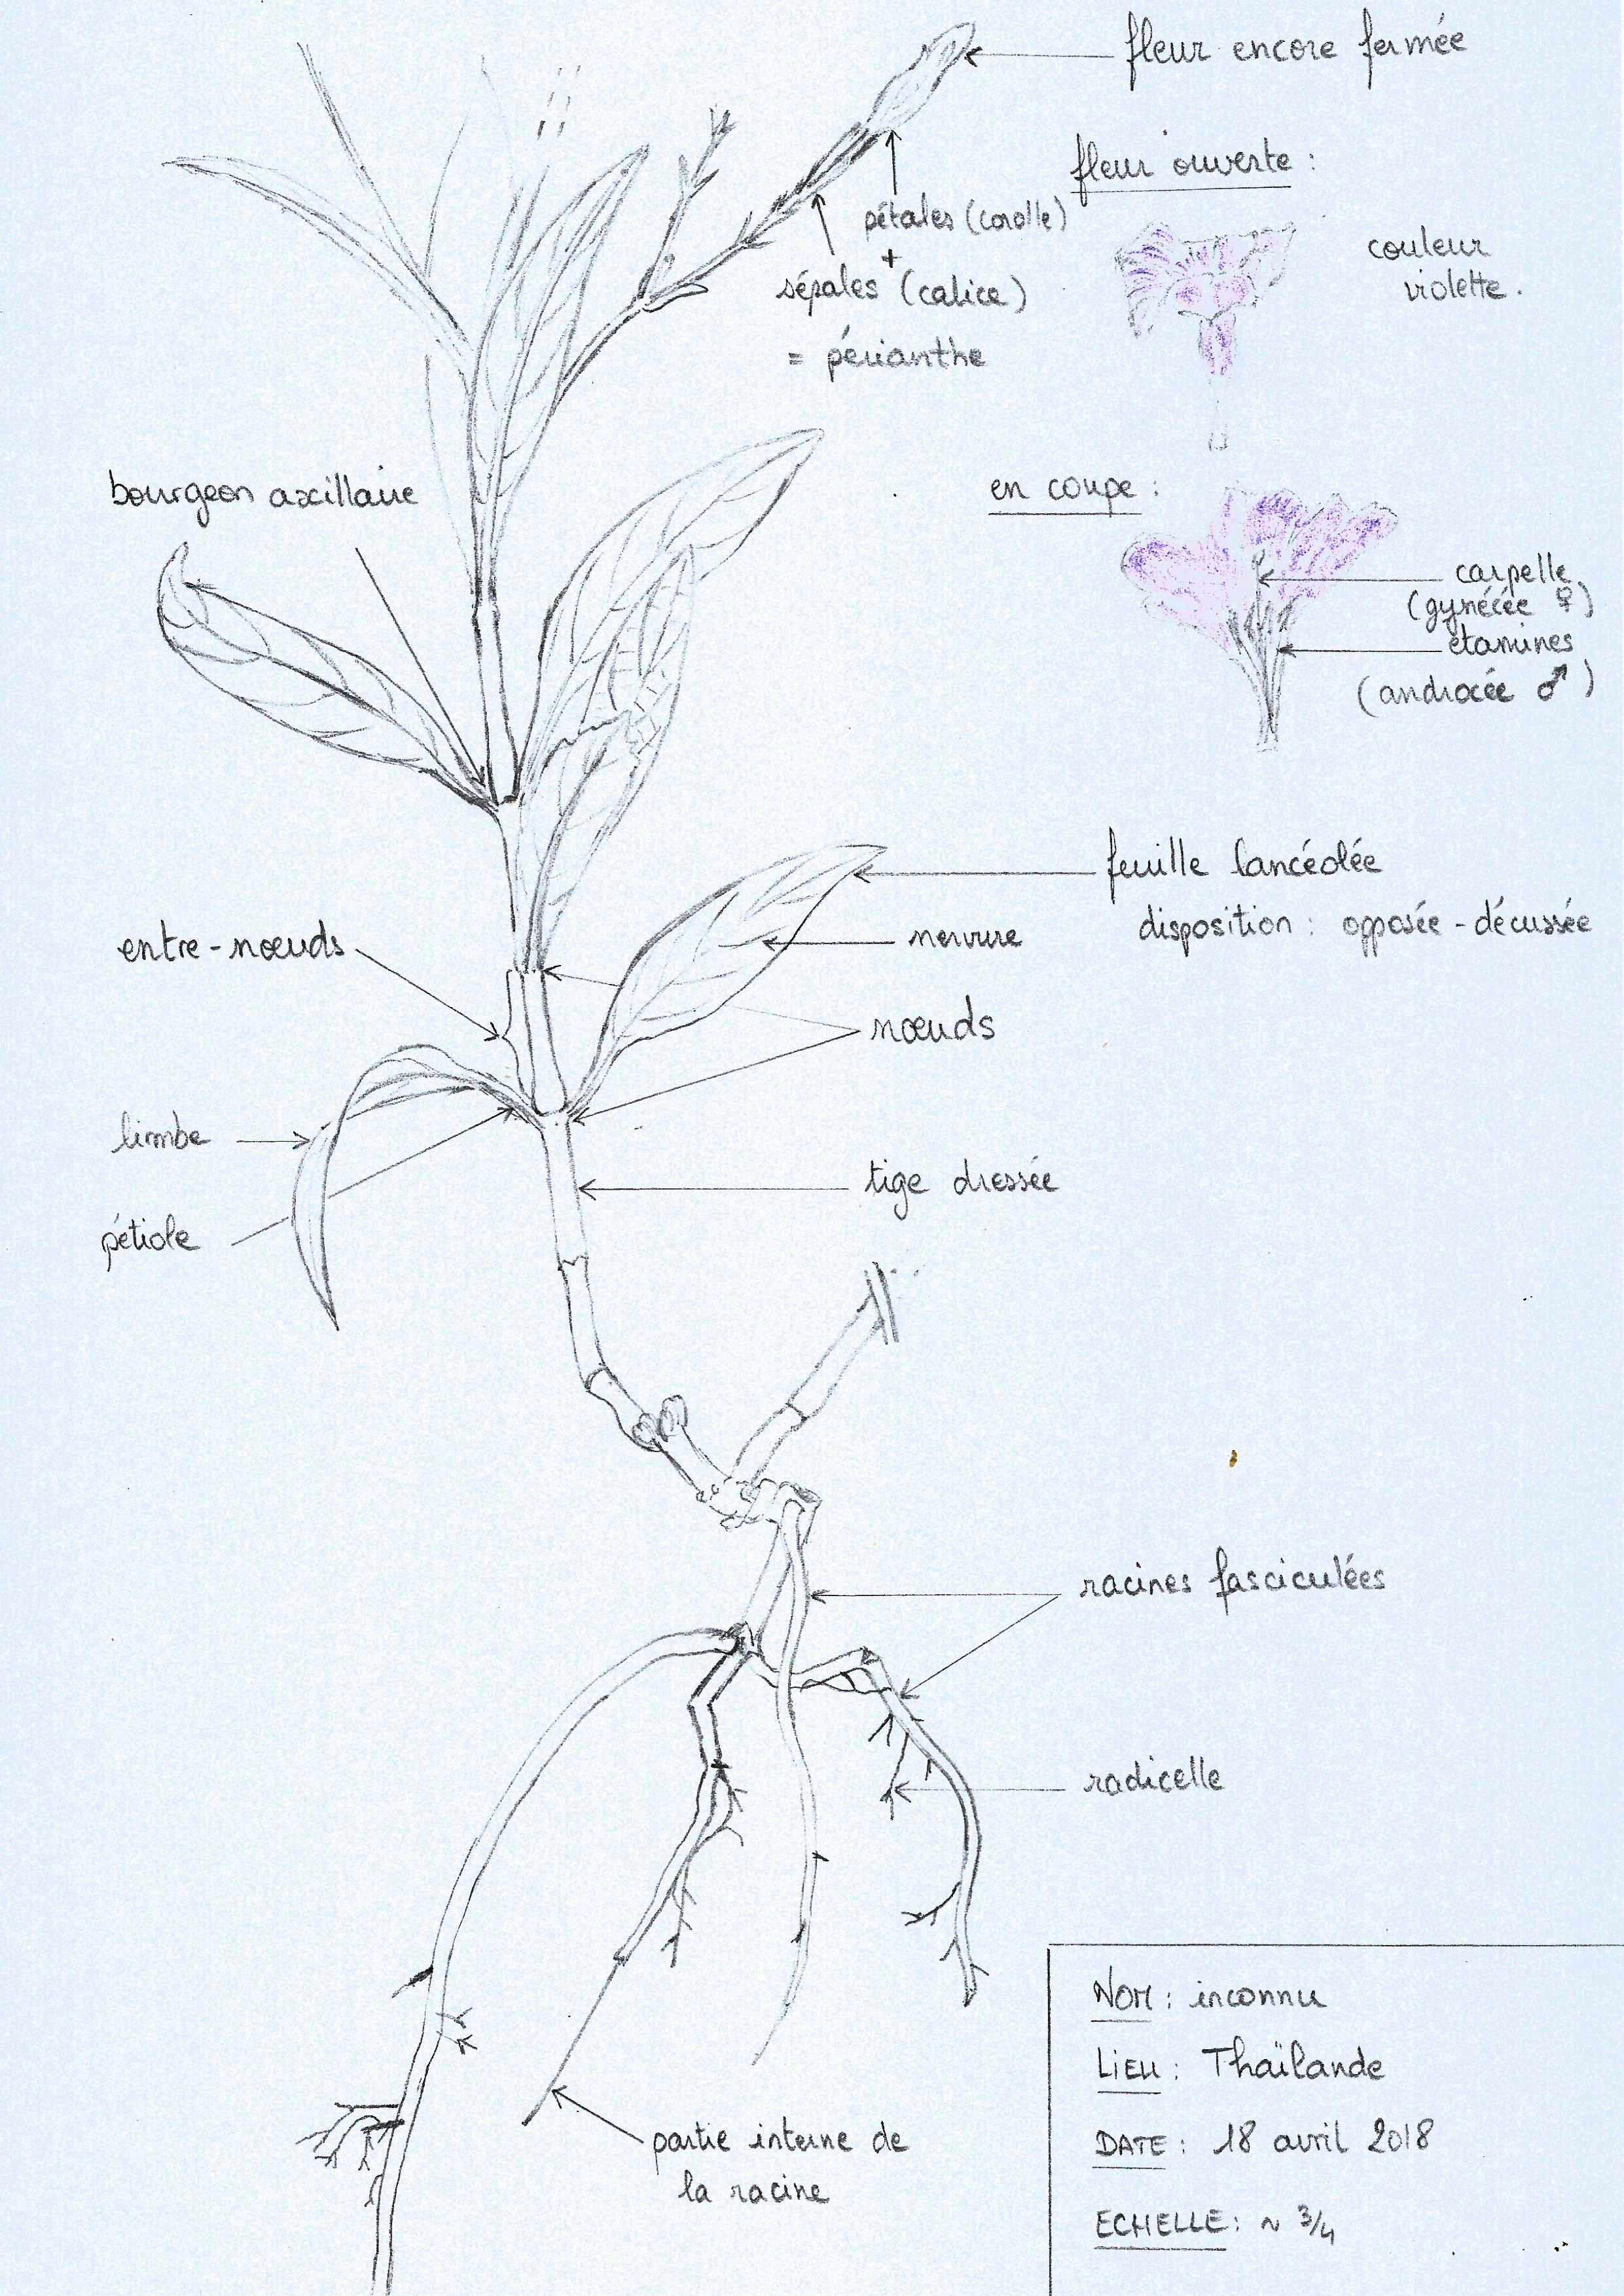 fleur encore fermée
fleur ouverte :
pétales (corolle)
+
sépales (calice)
= périanthe
couleur
violette.
bourgeon axillaire
en coupe :
carpelle
(gynécée ♀)
étamines
(androcée ♂)
feuille lancéolée
disposition : opposée - décussée
nervure
entre-nœuds
nœuds
limbe
pétiole
tige dressée
racines fasciculées
radicelle
partie interne de
la racine
NOM : inconnu
LIEU : Thaïlande
DATE : 18 avril 2018
ECHELLE : ~ 3/4